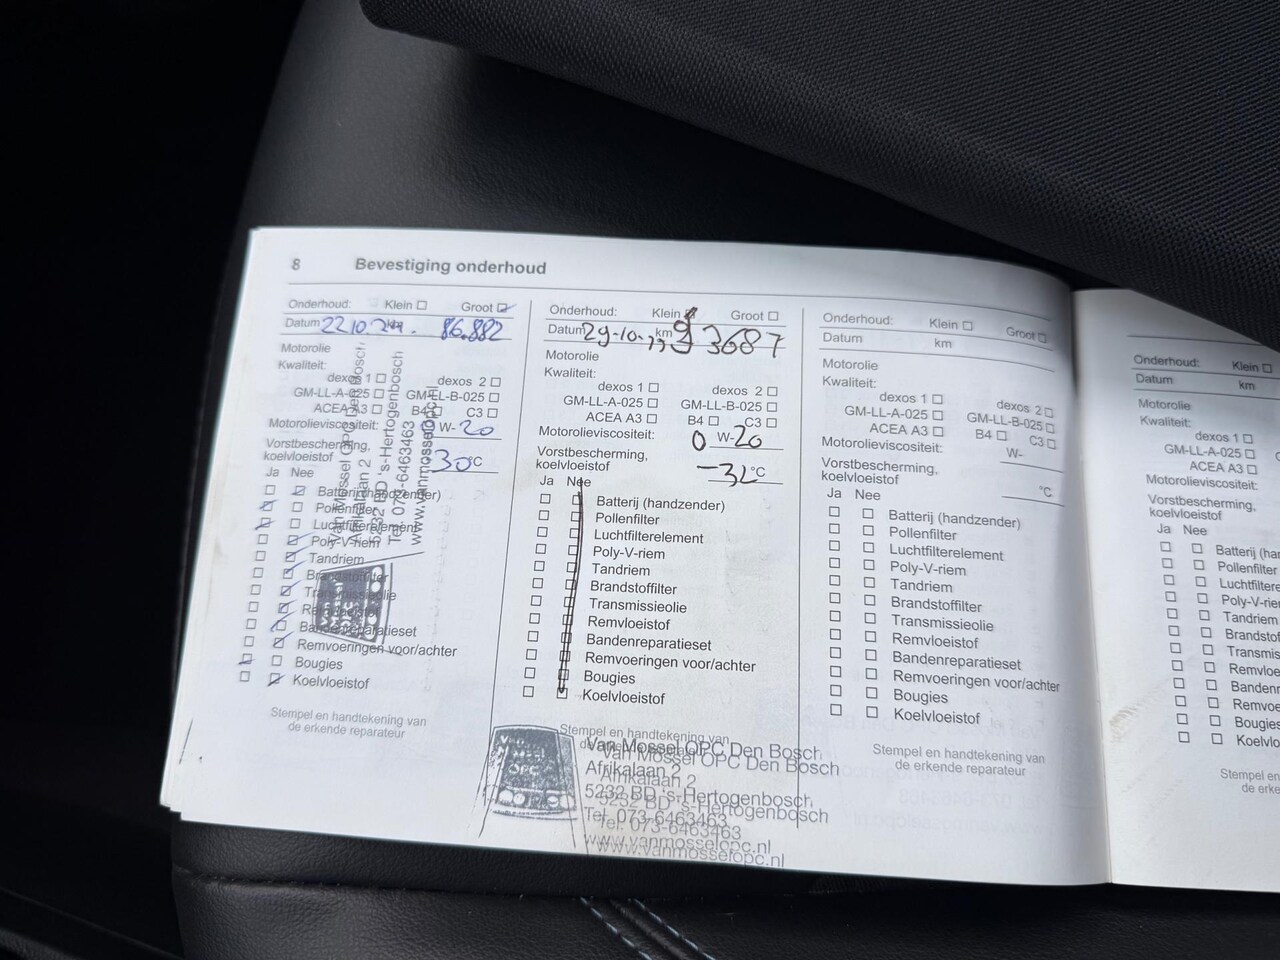 8 Bevestiging onderhoud
Onderhoud: Klein Groot
Datum 22 10 km 86.882
Motorolie
Kwaliteit:
dexos 1 dexos 2
GM-LL-A-025 GM-LL-B-025
ACEA A3 B4 C3
Motorolieviscositeit: W-20
Vorstbescherming,
koelvloeistof 30°C
Ja Nee
Batterij (handzender)
Pollenfilter
Luchtfilterelement
Poly-V-riem
Tandriem
Brandstoffilter
Transmissieolie
Remvloeistof
Bandenreparatieset
Remvoeringen voor/achter
Bougies
Koelvloeistof
Stempel en handtekening van
de erkende reparateur
Van Mossel OPC Den Bosch
Afrikalaan 2
5232 BD 's-Hertogenbosch
Tel. 073-6463463
www.vanmosselopc.nl
Onderhoud: Klein Groot
Datum 29-10- km 93687
Motorolie
Kwaliteit:
dexos 1 dexos 2
GM-LL-A-025 GM-LL-B-025
ACEA A3 B4 C3
Motorolieviscositeit: 0 W-20
Vorstbescherming,
koelvloeistof -32 °C
Ja Nee
Batterij (handzender)
Pollenfilter
Luchtfilterelement
Poly-V-riem
Tandriem
Brandstoffilter
Transmissieolie
Remvloeistof
Bandenreparatieset
Remvoeringen voor/achter
Bougies
Koelvloeistof
Stempel en handtekening van
Van Mossel OPC Den Bosch
Van Mossel OPC Den Bosch
Afrikalaan 2
Afrikalaan 2
5232 BD 's-Hertogenbosch
5232 BD 's-Hertogenbosch
Tel. 073-6463463
Tel. 073-6463463
www.vanmosselopc.nl
www.vanmosselopc.nl
Onderhoud: Klein Groot
Datum km
Motorolie
Kwaliteit:
dexos 1 dexos 2
GM-LL-A-025 GM-LL-B-025
ACEA A3 B4 C3
Motorolieviscositeit: W-
Vorstbescherming,
koelvloeistof °C
Ja Nee
Batterij (handzender)
Pollenfilter
Luchtfilterelement
Poly-V-riem
Tandriem
Brandstoffilter
Transmissieolie
Remvloeistof
Bandenreparatieset
Remvoeringen voor/achter
Bougies
Koelvloeistof
Stempel en handtekening van
de erkende reparateur
Onderhoud: Klein
Datum km
Motorolie
Kwaliteit:
dexos 1
GM-LL-A-025
ACEA A3
Motorolieviscositeit:
Vorstbescherming,
koelvloeistof
Ja Nee
Batterij (han
Pollenfilter
Luchtfilter
Poly-V-rie
Tandriem
Brandsto
Transmis
Remvloe
Banden
Remvoe
Bougies
Koelvlo
Stempel en
de erke